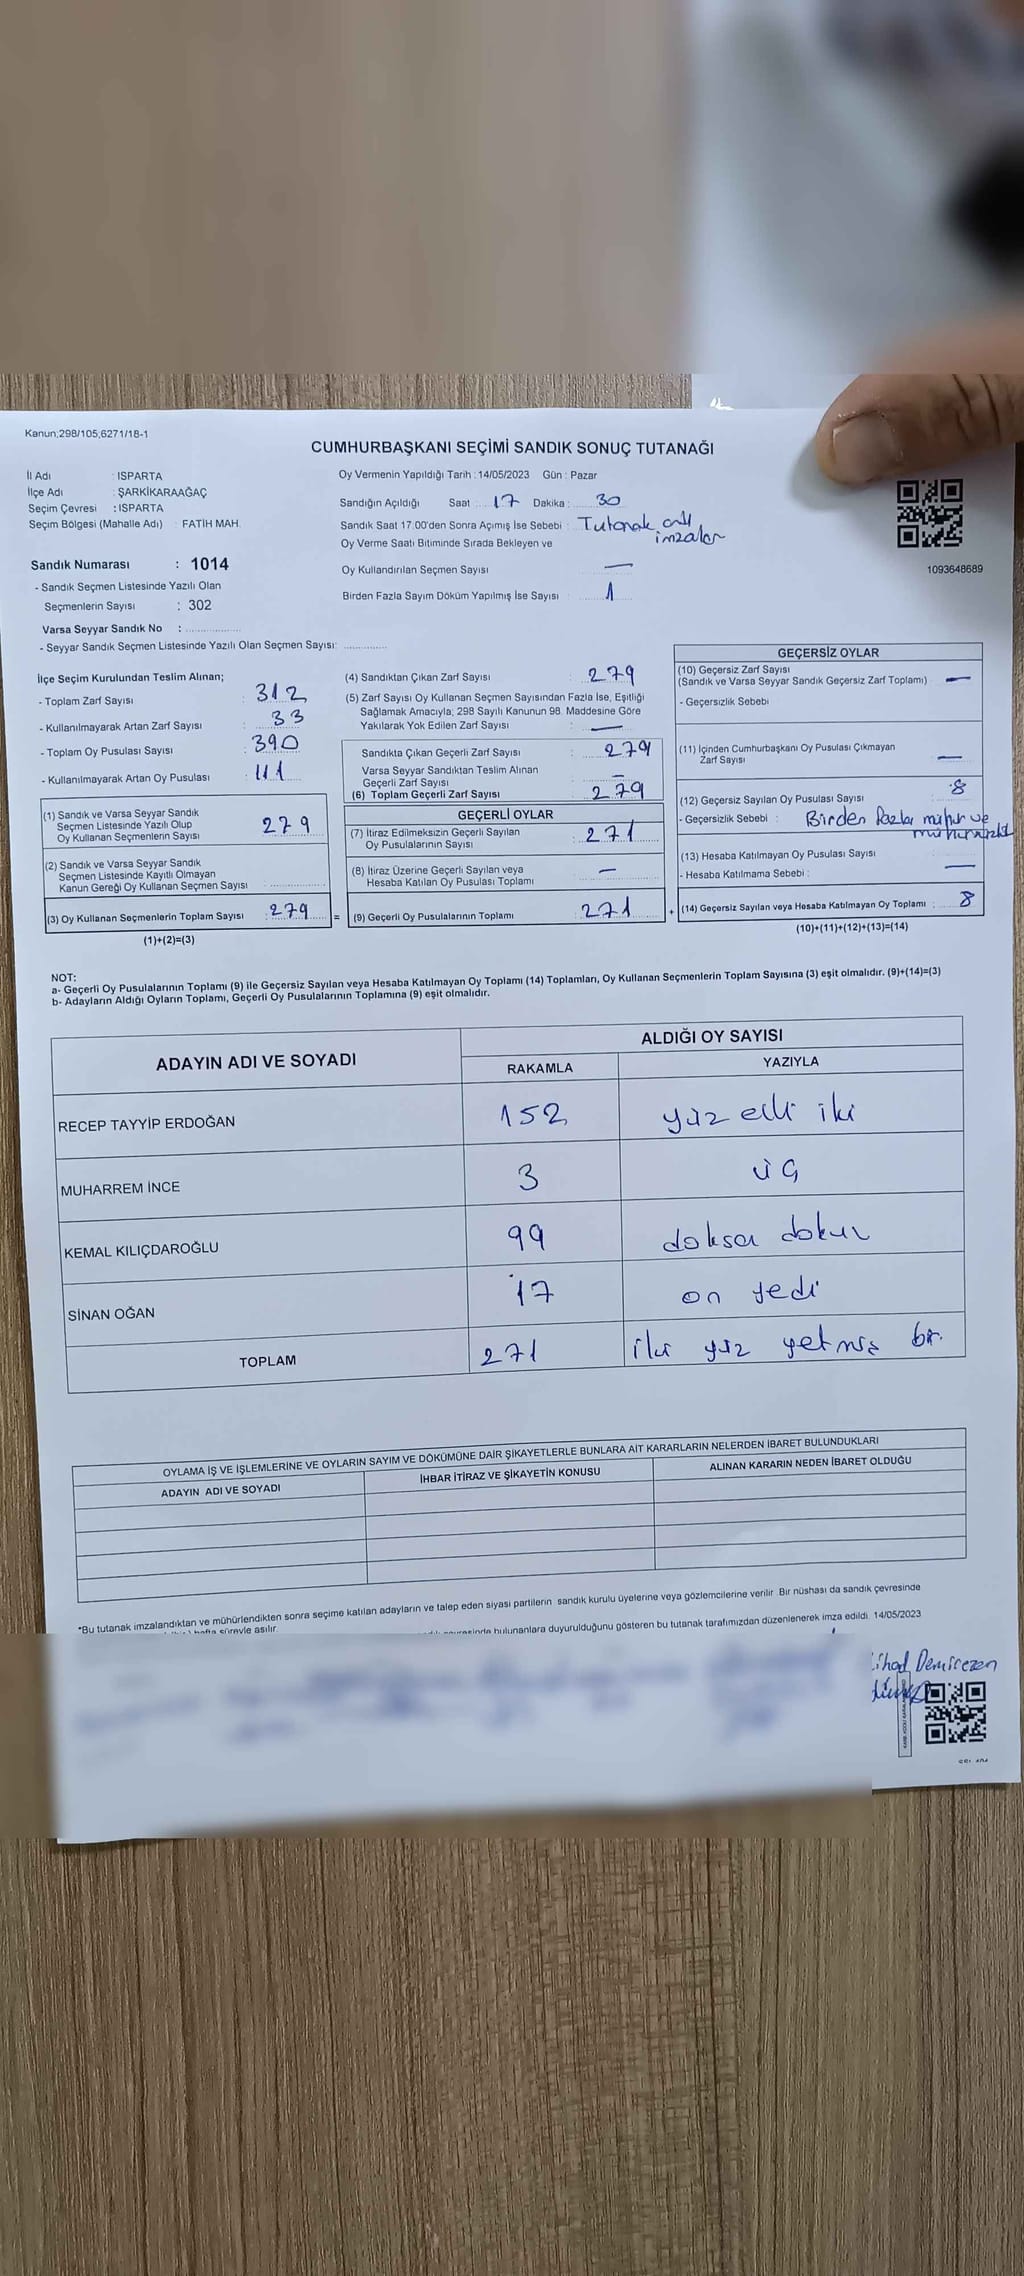 Kanun;298/105,6271/18-1
CUMHURBAŞKANI SEÇİMİ SANDIK SONUÇ TUTANAĞI
İl Adı : ISPARTA
İlçe Adı : ŞARKİKARAAĞAÇ
Seçim Çevresi : ISPARTA
Seçim Bölgesi (Mahalle Adı) : FATİH MAH.
Oy Vermenin Yapıldığı Tarih : 14/05/2023 Gün : Pazar
Sandığın Açıldığı Saat : 17 Dakika : 30
Sandık Saat 17.00'den Sonra Açımış İse Sebebi : Tutanak
imzalar
Oy Verme Saati Bitiminde Sırada Bekleyen ve
Oy Kullandırılan Seçmen Sayısı : —
Birden Fazla Sayım Döküm Yapılmış İse Sayısı : 1
1093648689
Sandık Numarası : 1014
- Sandık Seçmen Listesinde Yazılı Olan
Seçmenlerin Sayısı : 302
Varsa Seyyar Sandık No : ..................
- Seyyar Sandık Seçmen Listesinde Yazılı Olan Seçmen Sayısı: .............
İlçe Seçim Kurulundan Teslim Alınan;
- Toplam Zarf Sayısı : 312
- Kullanılmayarak Artan Zarf Sayısı : 33
- Toplam Oy Pusulası Sayısı : 390
- Kullanılmayarak Artan Oy Pusulası : 111
(1) Sandık ve Varsa Seyyar Sandık
Seçmen Listesinde Yazılı Olup
Oy Kullanan Seçmenlerin Sayısı : 279
(2) Sandık ve Varsa Seyyar Sandık
Seçmen Listesinde Kayıtlı Olmayan
Kanun Gereği Oy Kullanan Seçmen Sayısı
(3) Oy Kullanan Seçmenlerin Toplam Sayısı : 279 =
(1)+(2)=(3)
(4) Sandıktan Çıkan Zarf Sayısı : 279
(5) Zarf Sayısı Oy Kullanan Seçmen Sayısından Fazla İse, Eşitliği
Sağlamak Amacıyla; 298 Sayılı Kanunun 98. Maddesine Göre
Yakılarak Yok Edilen Zarf Sayısı : —
Sandıkta Çıkan Geçerli Zarf Sayısı : 279
Varsa Seyyar Sandıktan Teslim Alınan
Geçerli Zarf Sayısı : —
(6) Toplam Geçerli Zarf Sayısı : 279
GEÇERLİ OYLAR
(7) İtiraz Edilmeksizin Geçerli Sayılan
Oy Pusulalarının Sayısı : 271
(8) İtiraz Üzerine Geçerli Sayılan veya
Hesaba Katılan Oy Pusulası Toplamı : —
(9) Geçerli Oy Pusulalarının Toplamı : 271 +
GEÇERSİZ OYLAR
(10) Geçersiz Zarf Sayısı
(Sandık ve Varsa Seyyar Sandık Geçersiz Zarf Toplamı) : —
- Geçersizlik Sebebi
(11) İçinden Cumhurbaşkanı Oy Pusulası Çıkmayan
Zarf Sayısı : —
(12) Geçersiz Sayılan Oy Pusulası Sayısı : 8
- Geçersizlik Sebebi : Birden fazla mühür ve
(13) Hesaba Katılmayan Oy Pusulası Sayısı
- Hesaba Katılmama Sebebi : —
(14) Geçersiz Sayılan veya Hesaba Katılmayan Oy Toplamı : 8
(10)+(11)+(12)+(13)=(14)
NOT:
a- Geçerli Oy Pusulalarının Toplamı (9) ile Geçersiz Sayılan veya Hesaba Katılmayan Oy Toplamı (14) Toplamları, Oy Kullanan Seçmenlerin Toplam Sayısına (3) eşit olmalıdır. (9)+(14)=(3)
b- Adayların Aldığı Oyların Toplamı, Geçerli Oy Pusulalarının Toplamına (9) eşit olmalıdır.
ADAYIN ADI VE SOYADI
ALDIĞI OY SAYISI
RAKAMLA YAZIYLA
RECEP TAYYİP ERDOĞAN 152 yüz elli iki
MUHARREM İNCE 3 üç
KEMAL KILIÇDAROĞLU 99 doksa dokuz
SİNAN OĞAN 17 on yedi
TOPLAM 271 iki yüz yetmiş bir.
OYLAMA İŞ VE İŞLEMLERİNE VE OYLARIN SAYIM VE DÖKÜMÜNE DAİR ŞİKAYETLERLE BUNLARA AİT KARARLARIN NELERDEN İBARET BULUNDUKLARI
ADAYIN ADI VE SOYADI
İHBAR İTİRAZ VE ŞİKAYETİN KONUSU
ALINAN KARARIN NEDEN İBARET OLDUĞU
*Bu tutanak imzalandıktan ve mühürlendikten sonra seçime katılan adayların ve talep eden siyasi partilerin sandık kurulu üyelerine veya gözlemcilerine verilir. Bir nüshası da sandık çevresinde
hafta süreyle asılır.
bulunanlara duyurulduğunu gösteren bu tutanak tarafımızdan düzenlenerek imza edildi. 14/05/2023
Demirezen